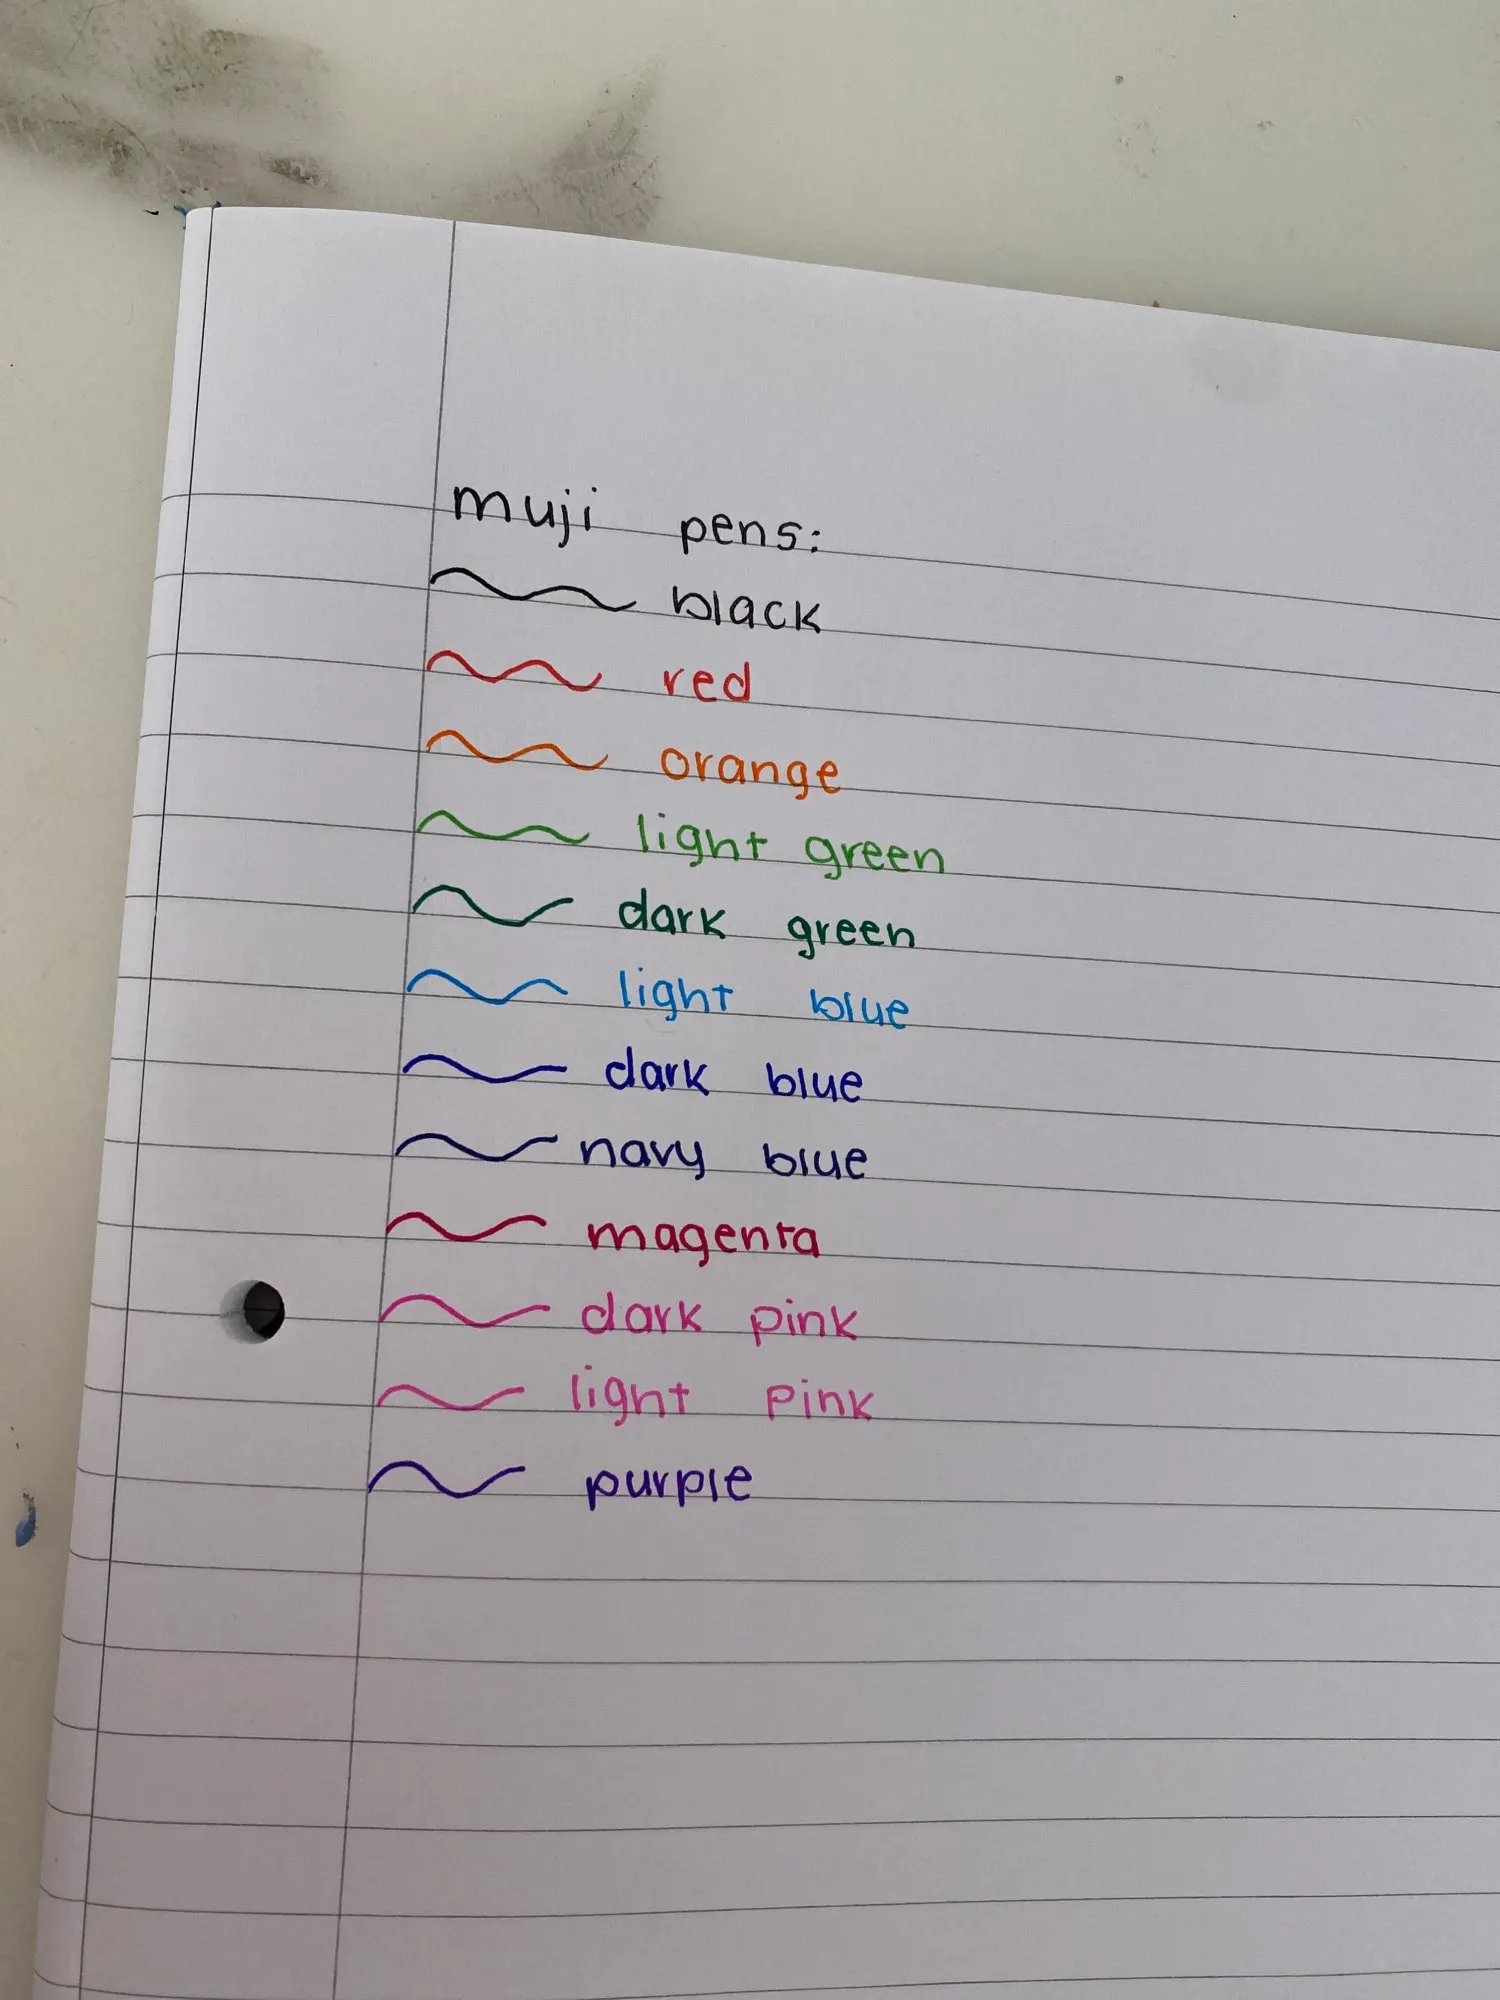 muji pens:
black
red
orange
light green
dark green
light blue
dark blue
navy blue
magenta
dark pink
light pink
purple